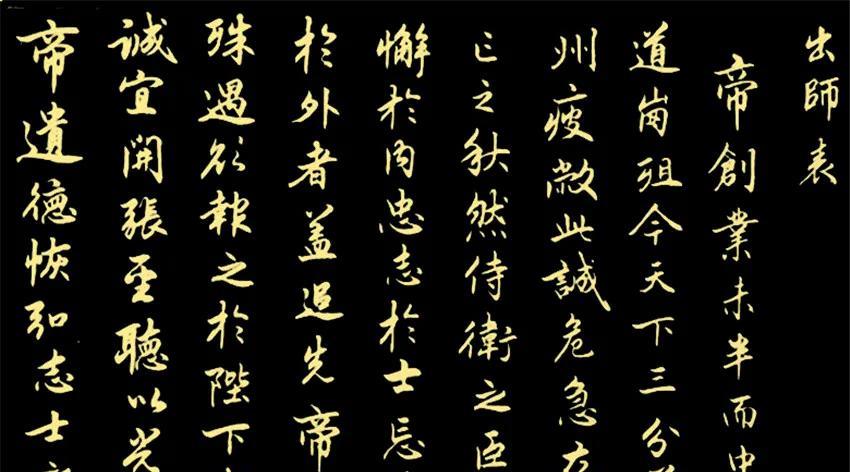 出師表
帝創業未半而中
道崩殂今天下三分
州疲敝此誠危急
亡之秋然侍衛之臣
懈於内忠志於士忘
於外者蓋追先帝
殊遇欲報之於陛下
誠宜開張聖聽以光
帝遺德恢弘志士